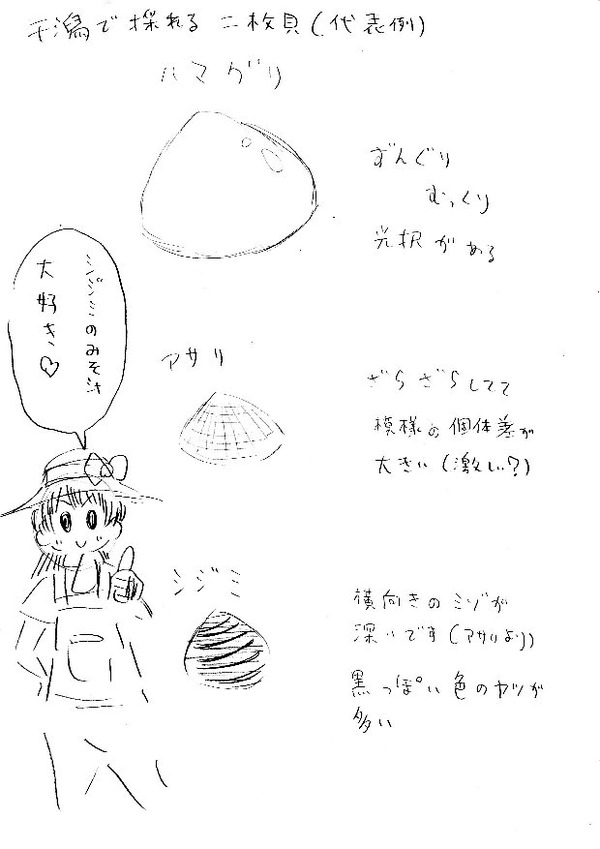 干潟で採れる二枚貝(代表例)
ハマグリ
ずんぐり
むっくり
光沢がある
シジミのみそ汁
大好き♡
アサリ
ざらざらしてて
模様の個体差が
大きい(激しい?)
シジミ
横向きのミゾが
深いです(アサリより)
黒っぽい色のヤツが
多い